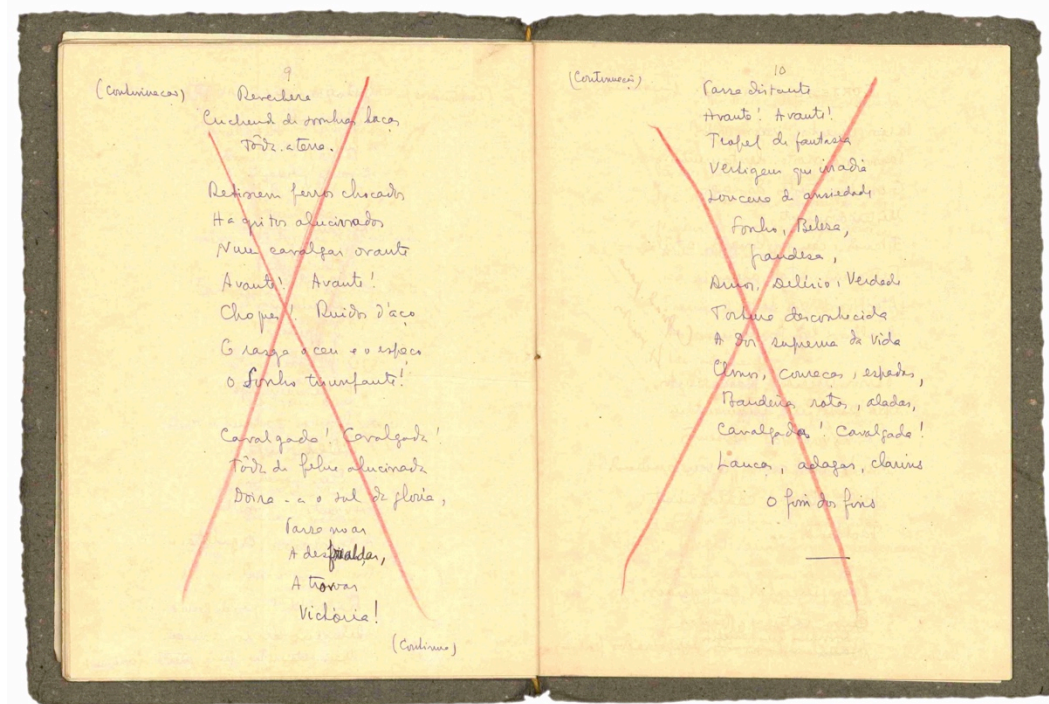 9
(Continuação)
Reverbere
Enchendo de sonhos baços
Tôda a terra.
Retinem ferros chocados
Ha gritos alucinados
Num cavalgar ovante
Avante! Avante!
Choques! Ruidos d'aço
E rasga o ceu e o espaço
O Sonho triunfante!
Cavalgada! Cavalgada!
Tôda de febre alucinada
Doira-a o sol da gloria,
Passa no ar
A desfraldar,
A trovar
Victória!
(Continua)
10
(Continuação)
Passa distante
Avante! Avante!
Tropel de fantasia
Vertigem que irradia
Loucura de ansiedade
Sonho, Beleza,
Grandesa,
Amor, Delirio, Verdade
Tortura desconhecida
A Dor suprema da Vida
Elmos, couraças, espadas,
Bandeiras rotas, aladas,
Cavalgada! Cavalgada!
Lanças, adagas, clarins
O fim dos fins